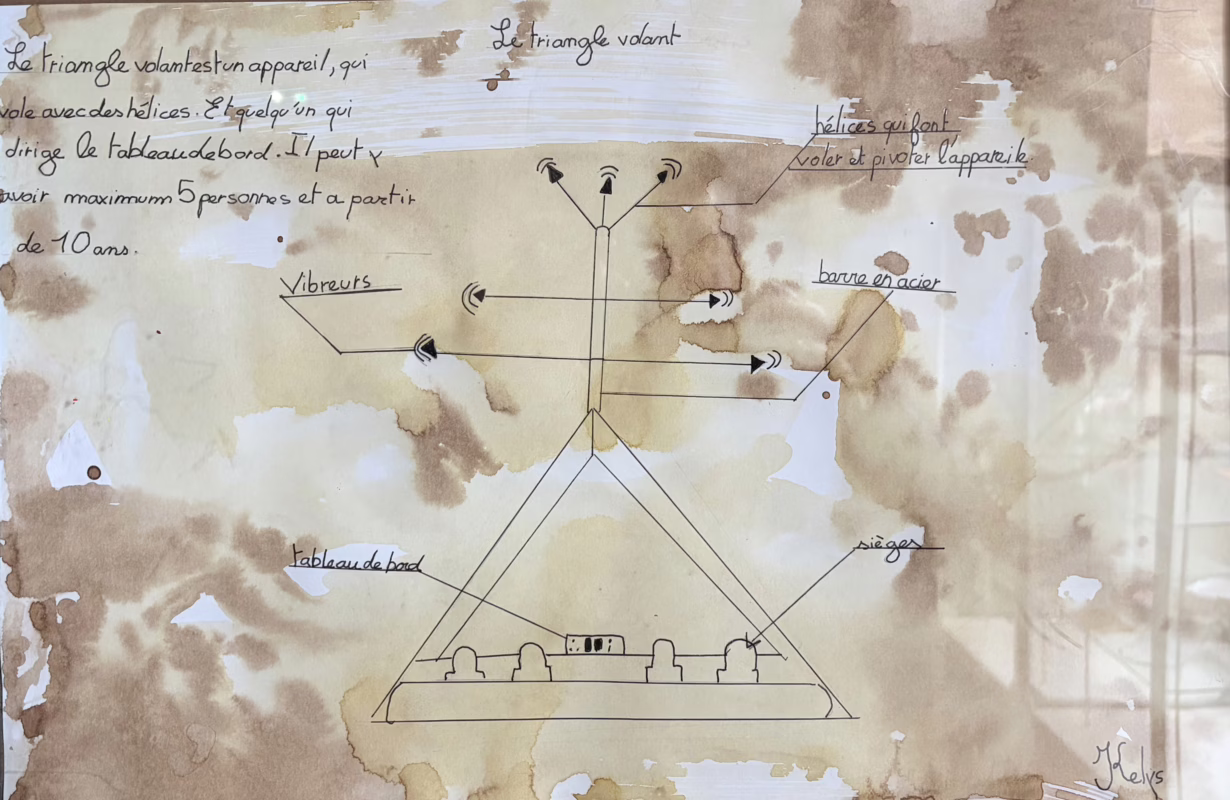 Le triangle volant
Le triangle volant est un appareil, qui
vole avec des hélices. Et quelqu'un qui
dirige le tableau de bord. Il peut y
avoir maximum 5 personnes et a partir
de 10 ans.
hélices qui font
voler et pivoter l'appareile.
Vibreurs
barre en acier
tableau de bord
sièges
Kelys